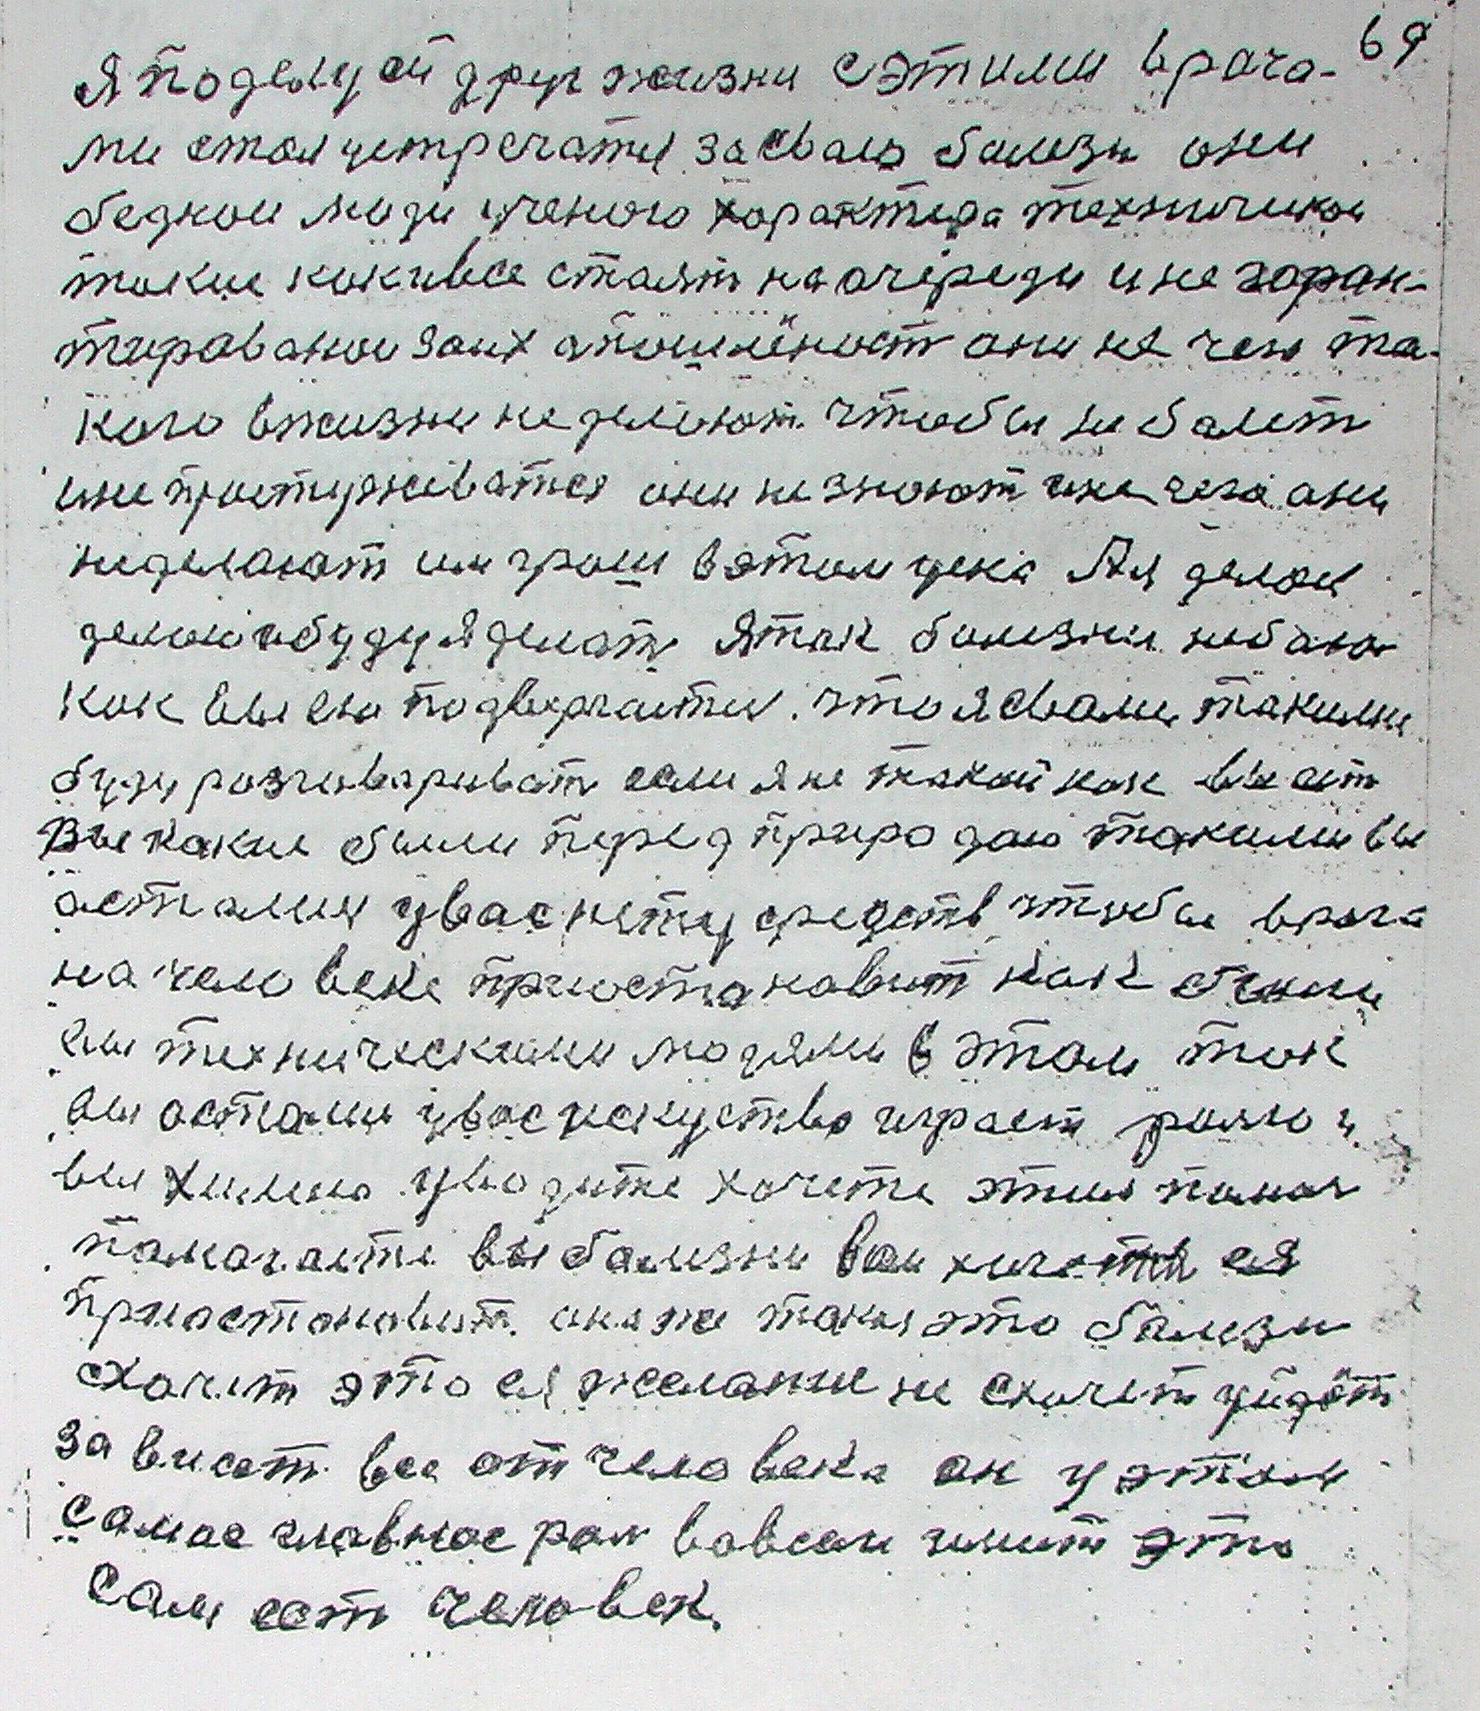 69
я по делу ей друг жизни с этими врача-
ми стал устречатся за сваю болезн они
бедной люди ученого характера технический
такие как и все стаят на очереди и не гаран-
тированой за их они не чем та-
кого в жизни не делают чтобы не балет
и не простуживатся они не знают и не чего они
не делают им грош в этом цена А я делал
делаю и буду я делат я так болезни не баюс
как вы ею подвергаетес. что я с вами такими
буду разговариват если я не такой как вы ест
Вы какие были перед природаю такими вы
астались у вас нету средств чтобы врага
на человеке приостановит как были
вы техническими людями в этом так
вы остались у вас искуство играет ролю и
вы химию уводите хочете этим памоч
памогаете вы болезни вам хочется ея
приостановит. она же такая это болезн
схочет это ея желание не схочет уйдёт
зависет все от человека он у этом
самое главное рол вовсем имеет это
сам ест человек.